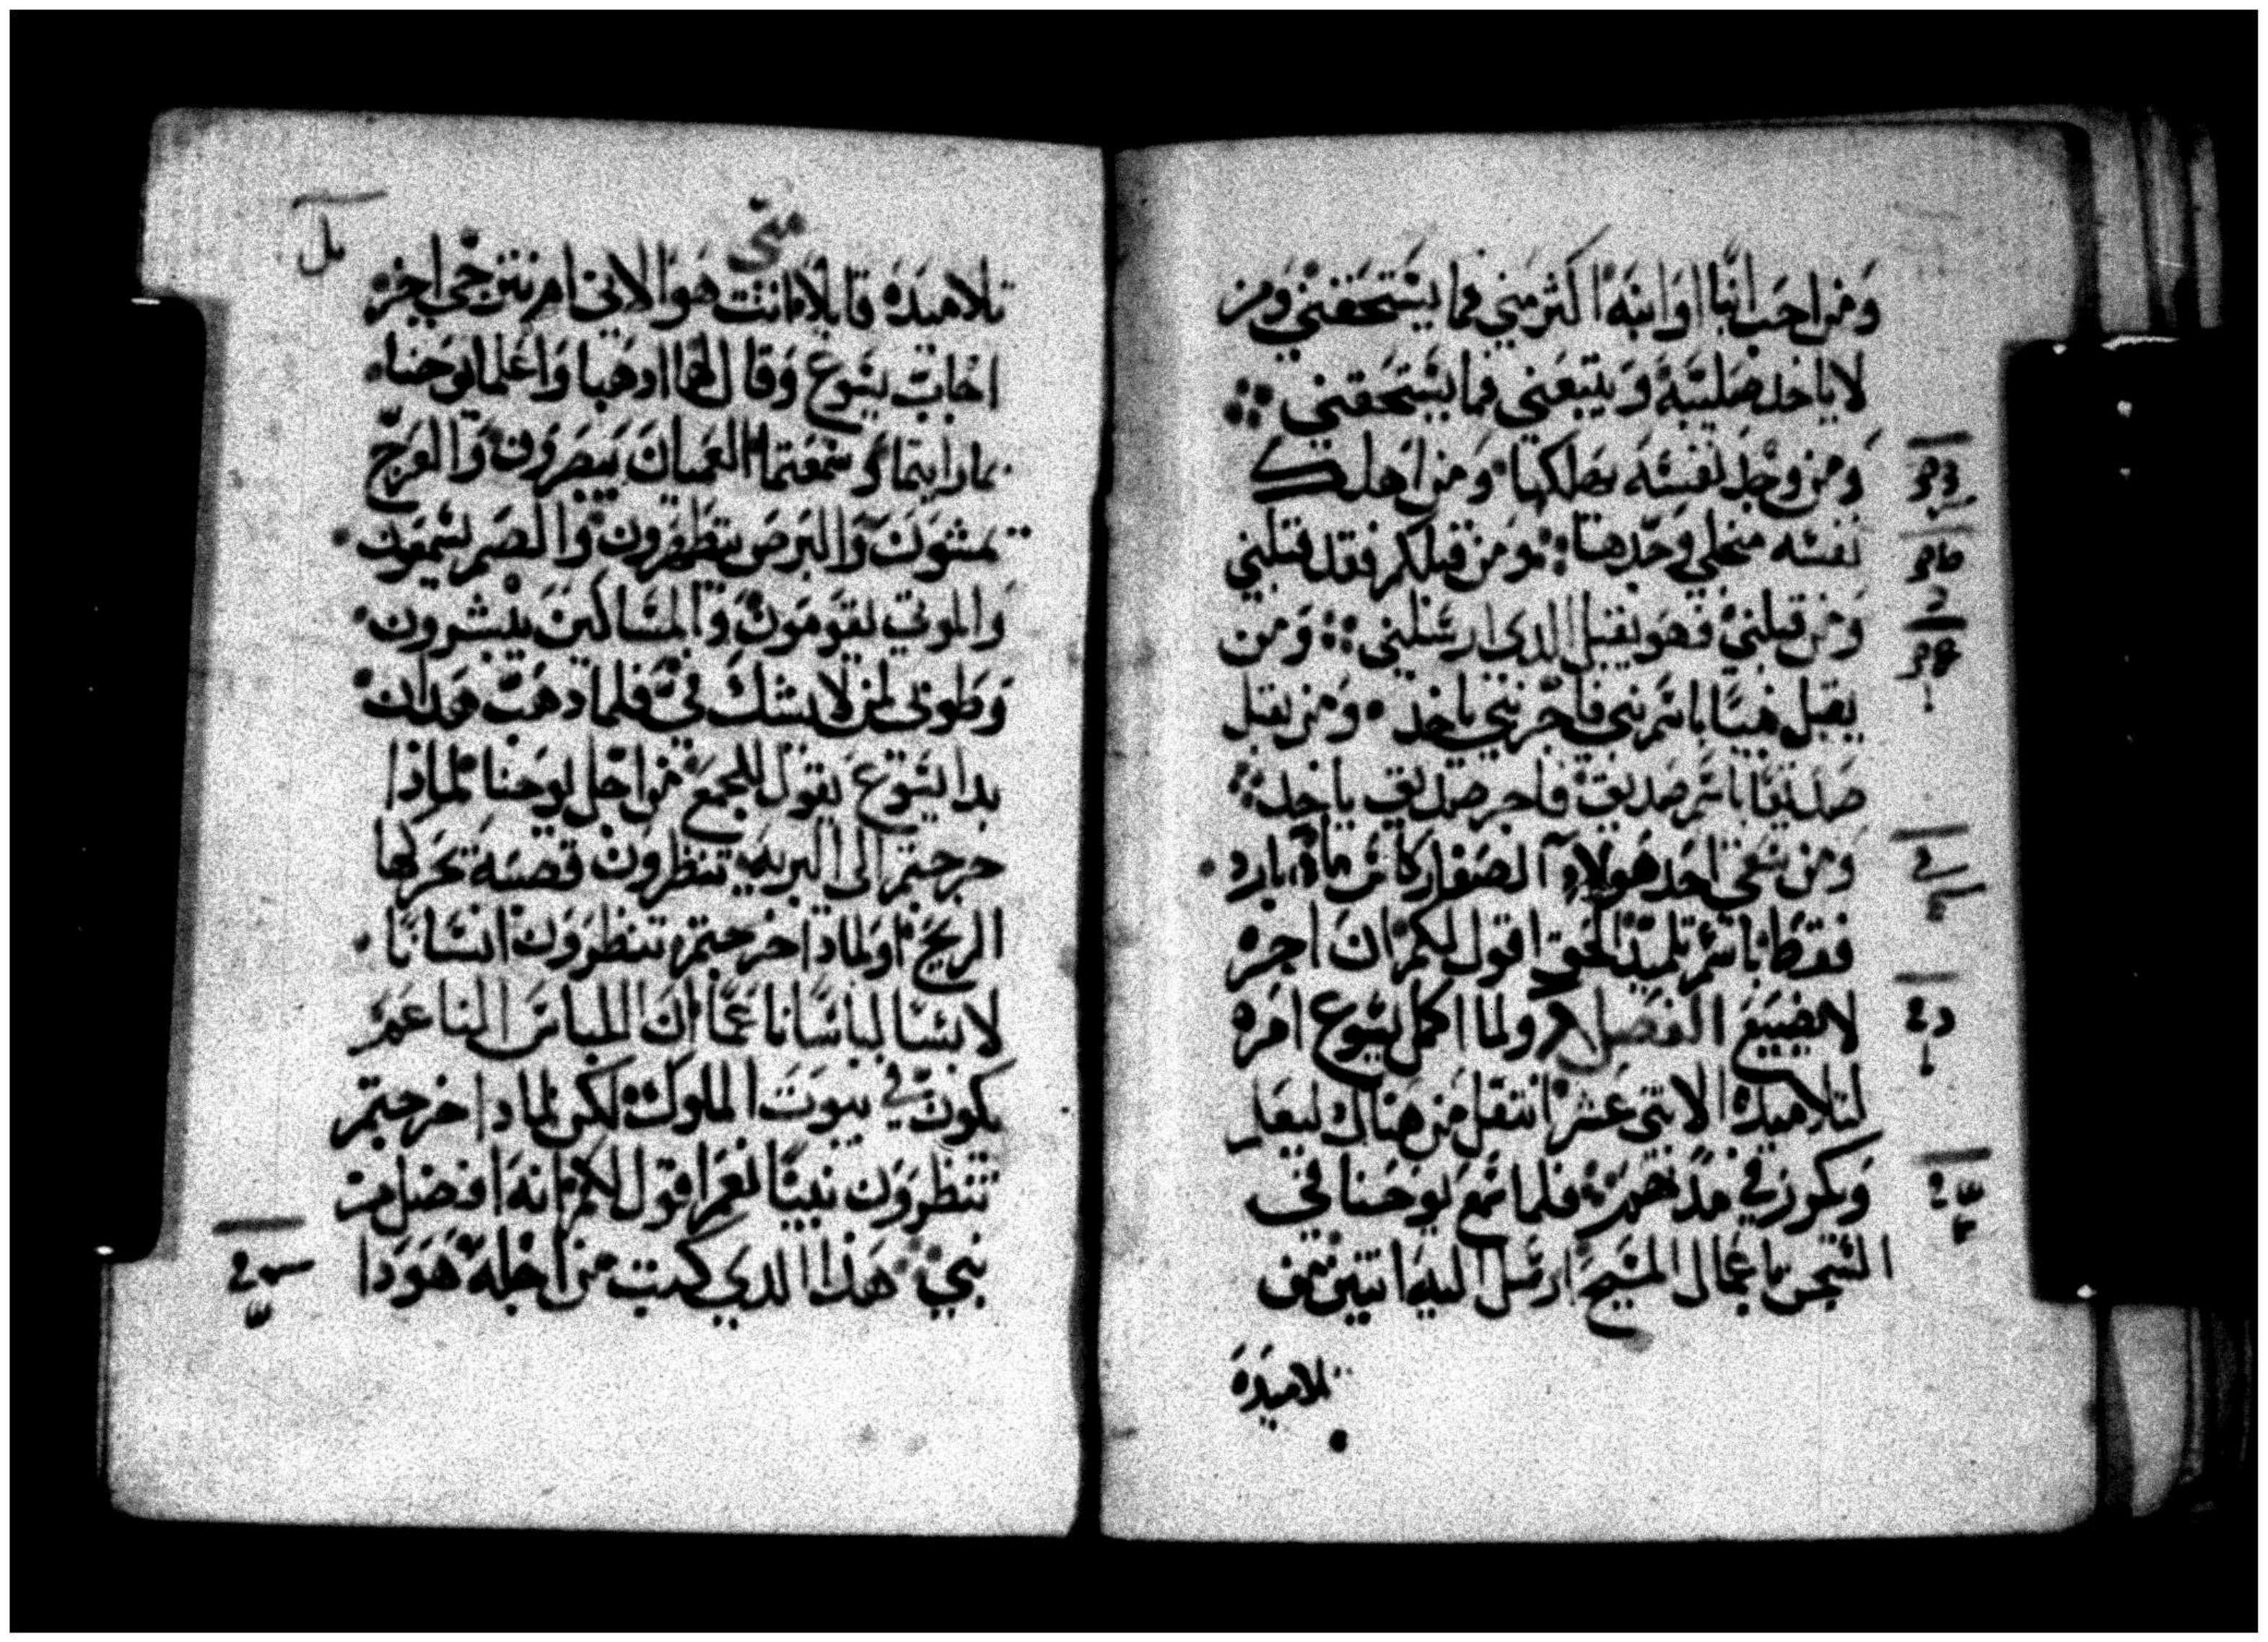 ومن احب ابنا او ابنه اكثر مني فما يستحقني ومن
لا ياخد صليبه ويتبعني فما يستحقني
ومن وجد نفسه يهلكها ومن اهلك
نفسه من اجلي وجدها ومن قبلكم فقد قبلني
ومن قبلني فهو يقبل الدي ارسلني ومن
يقبل نبيا باسم نبي فاجر نبي ياخد ومن يقبل
صديقا باسم صديق فاجر صديق ياخد
ومن سقي احد هولاء الصغار كاس ماء بارد
فقط باسم تلميد الحق اقول لكم ان اجره
لا يضيع الفصل ولما اكمل يسوع امره
لتلاميده الاثني عشر انتقل من هناك ليعلم
ويكرز في مدنهم فلما سمع يوحنا في
السجن باعمال المسيح ارسل اليه اتنين من
تلاميده
متى
تلاميده قايلا انت هو الاتي ام نترجي اخر
اجاب يسوع وقال لهما ادهبا واعلما يوحنا
بما رايتما وسمعتما العميان يبصرون والعرج
يمشون والبرص يتطهرون والصم يسمعون
والموتي يقومون والمساكين يبشرون
وطوبي لمن لا يشك في فلما دهب هدان
بدا يسوع يقول للجمع من اجل يوحنا لماذا
خرجتم الى البريه تنظرون قصبة تحركها
الريح او لمادا خرجتم تنظرون انسانا
لابسا لباسا ناعما ان اللباس الناعم
يكون في بيوت الملوك لكن لمادا خرجتم
تنظرون نبيا نعم اقول لكم انه افضل من
نبي هذا الدي كتب من اجله هودا